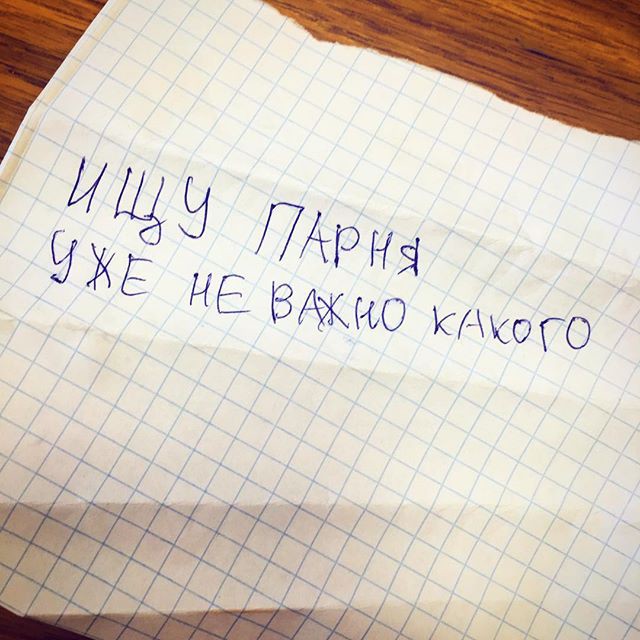 ИЩУ ПАРНЯ
УЖЕ НЕ ВАЖНО КАКОГО